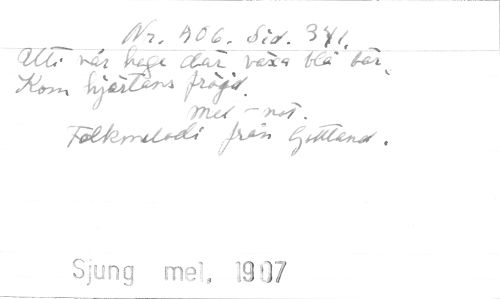 Nr. 406. Sid. 341.
Uti vår hage där växa blå bär,
Kom hjärtans fröjd.
mel-not.
Folkmelodi från Gottland.
Sjung mel. 1907